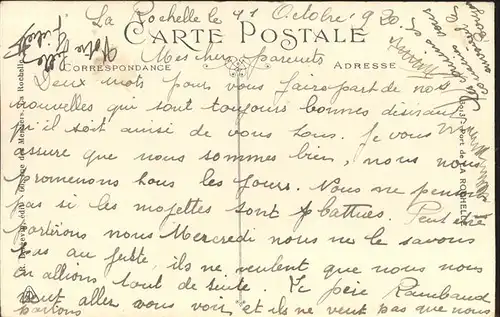 La Rochelle le 11 Octobre 1920
CARTE POSTALE
Mes chers parents
CORRESPONDANCE
ADRESSE
Deux mots pour vous faire part de nos
nouvelles qui sont toujours bonnes désirant
qu'il soit ainsi de vous tous. Je vous
assure que nous sommes bien, nous nous
promenons tous les jours. Nous ne pensons
pas si les mojettes sont battues. Peut être
partirons nous Mercredi nous ne le savons
pas au juste, ils ne veulent que nous nous
en allions tout de suite. Le père Rambaud
veut aller vous voir et ils ne veut pas que nous
partions
Votre Fille
Port de LA ROCHELLE